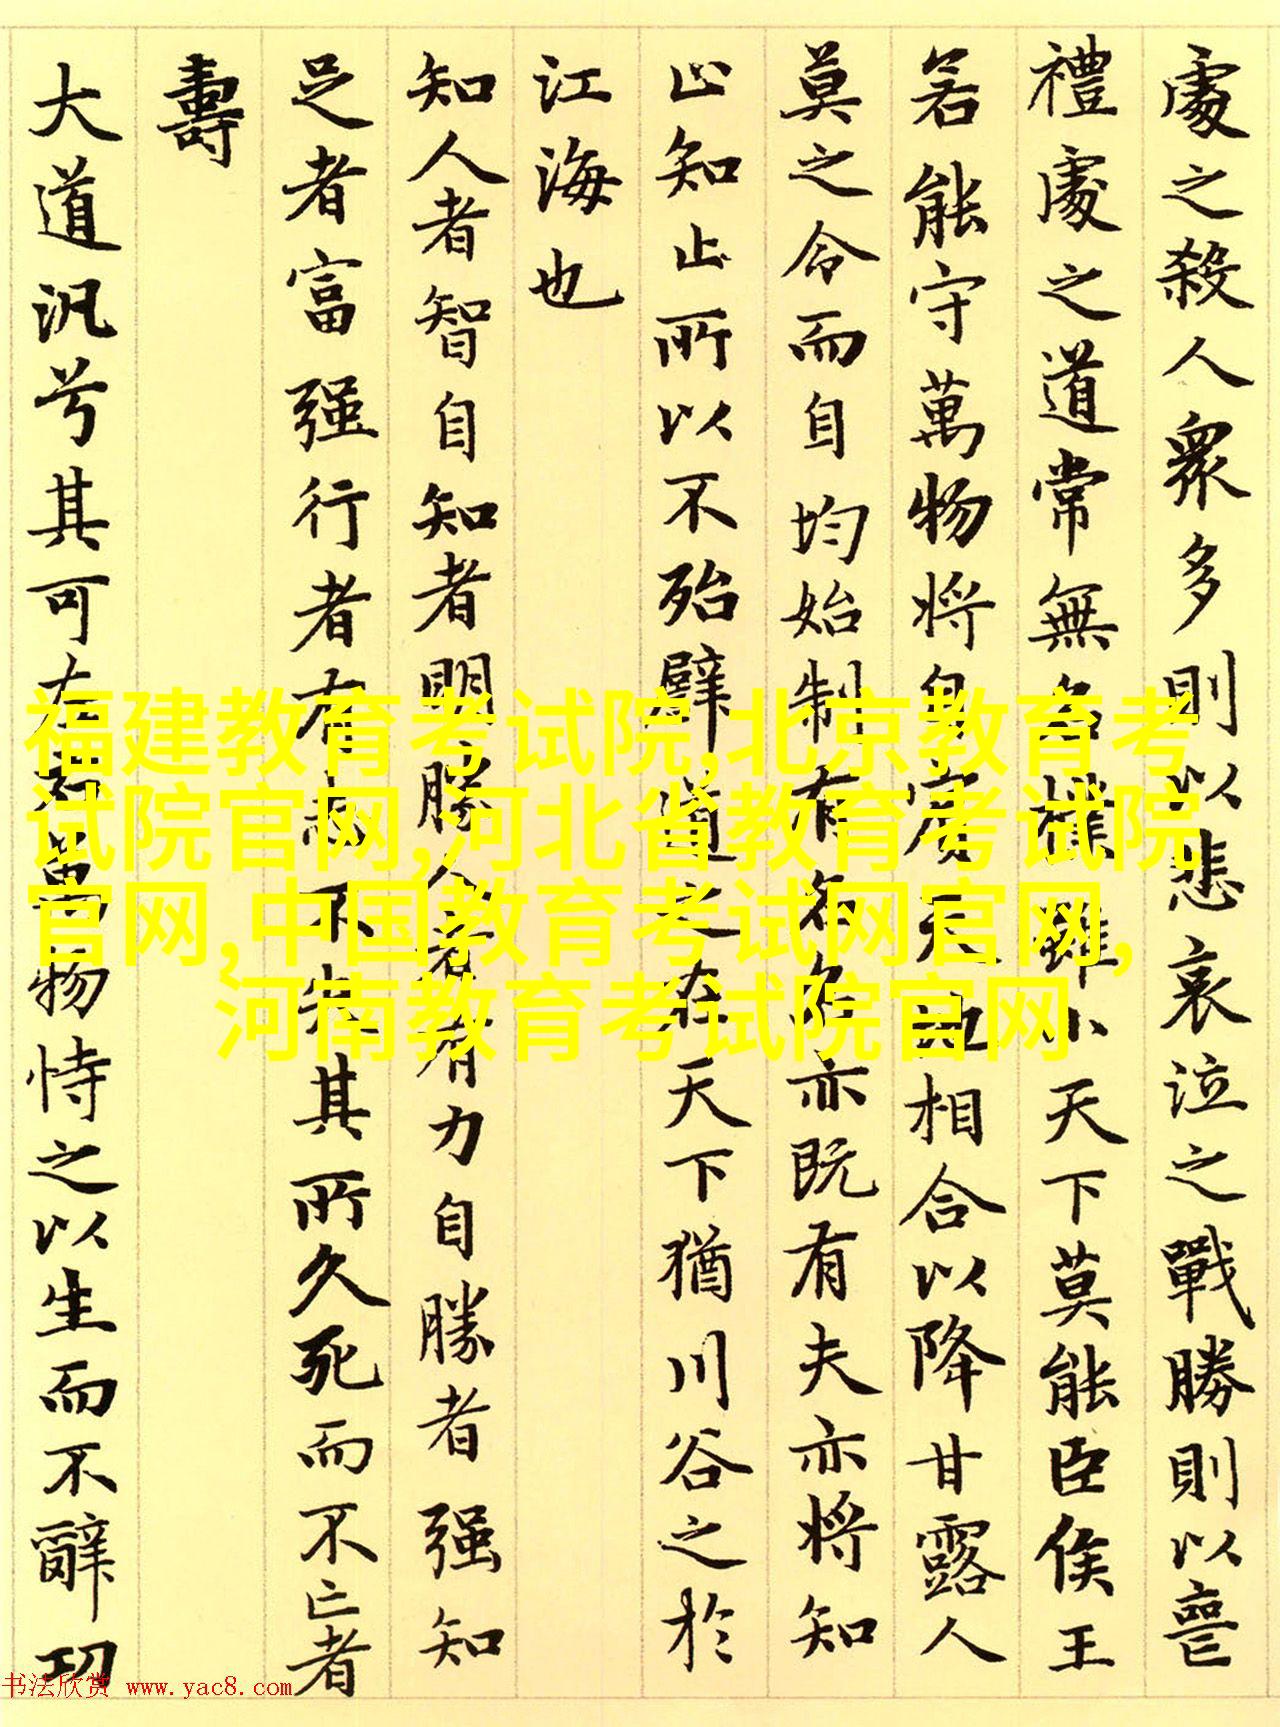 處之殺人衆多則以悲哀泣之戰勝則以喪
禮處之道常無名樸雖小天下莫能臣侯王
若能守萬物將自賓天地相合以降甘露人
莫之令而自均始制有名名亦既有夫亦將知
止知止所以不殆譬道之在天下猶川谷之於
江海也
知人者智自知者明勝人者有力自勝者强知
足者富强行者有志不失其所久死而不亡者
壽
大道汎兮其可左右萬物恃之以生而不辭功
福建教育考试院,北京教育考
试院官网,河北省教育考试院
官网,中国教育考试网官网,
河南教育考试院官网
书法欣赏 www.yac8.com